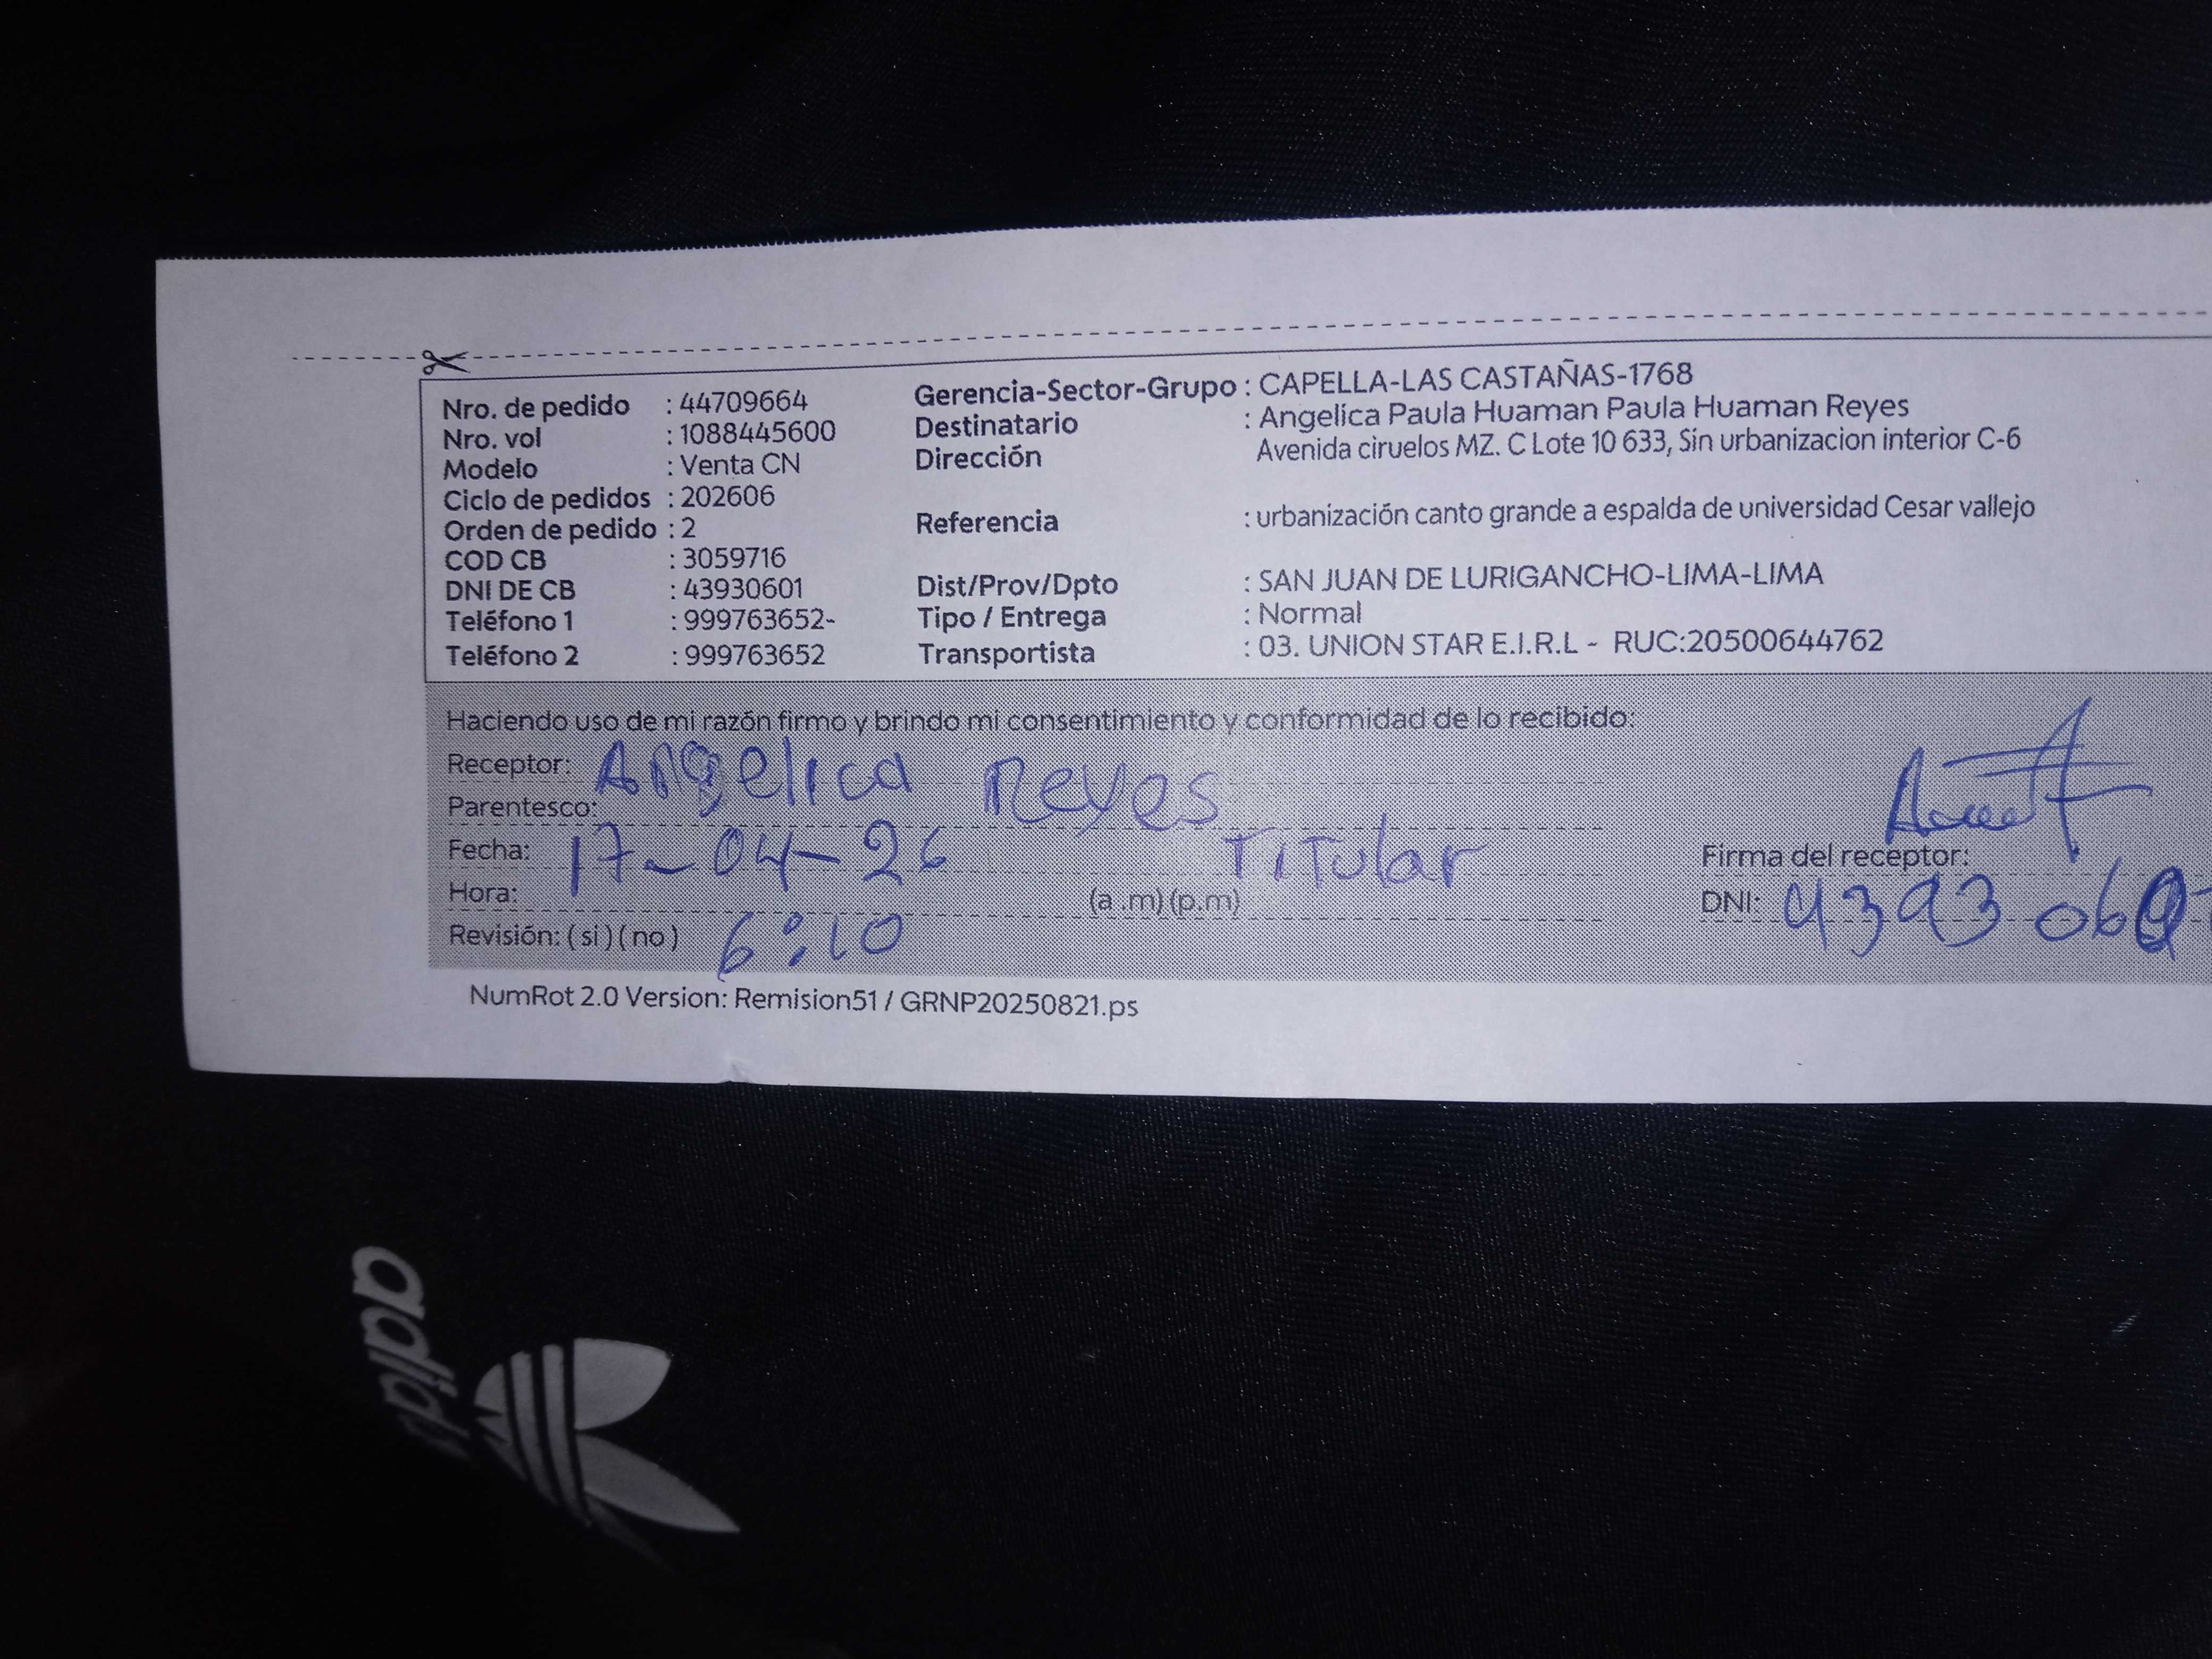 Nro. de pedido : 44709664
Nro. vol : 1088445600
Modelo : Venta CN
Ciclo de pedidos : 202606
Orden de pedido : 2
COD CB : 3059716
DNI DE CB : 43930601
Teléfono 1 : 999763652-
Teléfono 2 : 999763652
Gerencia-Sector-Grupo : CAPELLA-LAS CASTAÑAS-1768
Destinatario : Angelica Paula Huaman Paula Huaman Reyes
Dirección Avenida ciruelos MZ. C Lote 10 633, Sin urbanizacion interior C-6
Referencia : urbanización canto grande a espalda de universidad Cesar vallejo
Dist/Prov/Dpto : SAN JUAN DE LURIGANCHO-LIMA-LIMA
Tipo / Entrega : Normal
Transportista : 03. UNION STAR E.I.R.L - RUC:20500644762
Haciendo uso de mi razón firmo y brindo mi consentimiento y conformidad de lo recibido:
Receptor: Angelica Reyes
Parentesco: Titular
Fecha: 17-04-26
Hora: 6:10 (a .m) (p.m)
Revisión: ( si ) ( no )
Firma del receptor:
DNI: 4393060
NumRot 2.0 Version: Remision51 / GRNP20250821.ps
adidas